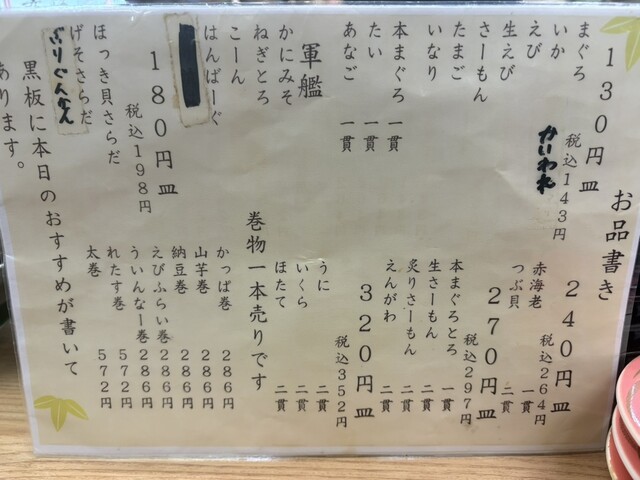 お品書き
130円皿
税込143円
かいわれ
まぐろ
いか
えび
生えび
さーもん
たまご
いなり
本まぐろ 一貫
たい 一貫
あなご 一貫
軍艦
かにみそ
ねぎとろ
こーん
はんばーぐ
180円皿
税込198円
ほっき貝さらだ
げそさらだ
240円皿
税込264円
赤海老 一貫
つぶ貝 二貫
270円皿
税込297円
本まぐろとろ 一貫
生さーもん 二貫
炙りさーもん 二貫
えんがわ 二貫
320円皿
税込352円
うに 二貫
いくら 二貫
ほたて 二貫
巻物一本売りです
かっぱ巻 286円
山芋巻 286円
納豆巻 286円
えびふらい巻 286円
ういんなー巻 286円
れたす巻 572円
太巻 572円
黒板に本日のおすすめが書いて
あります。